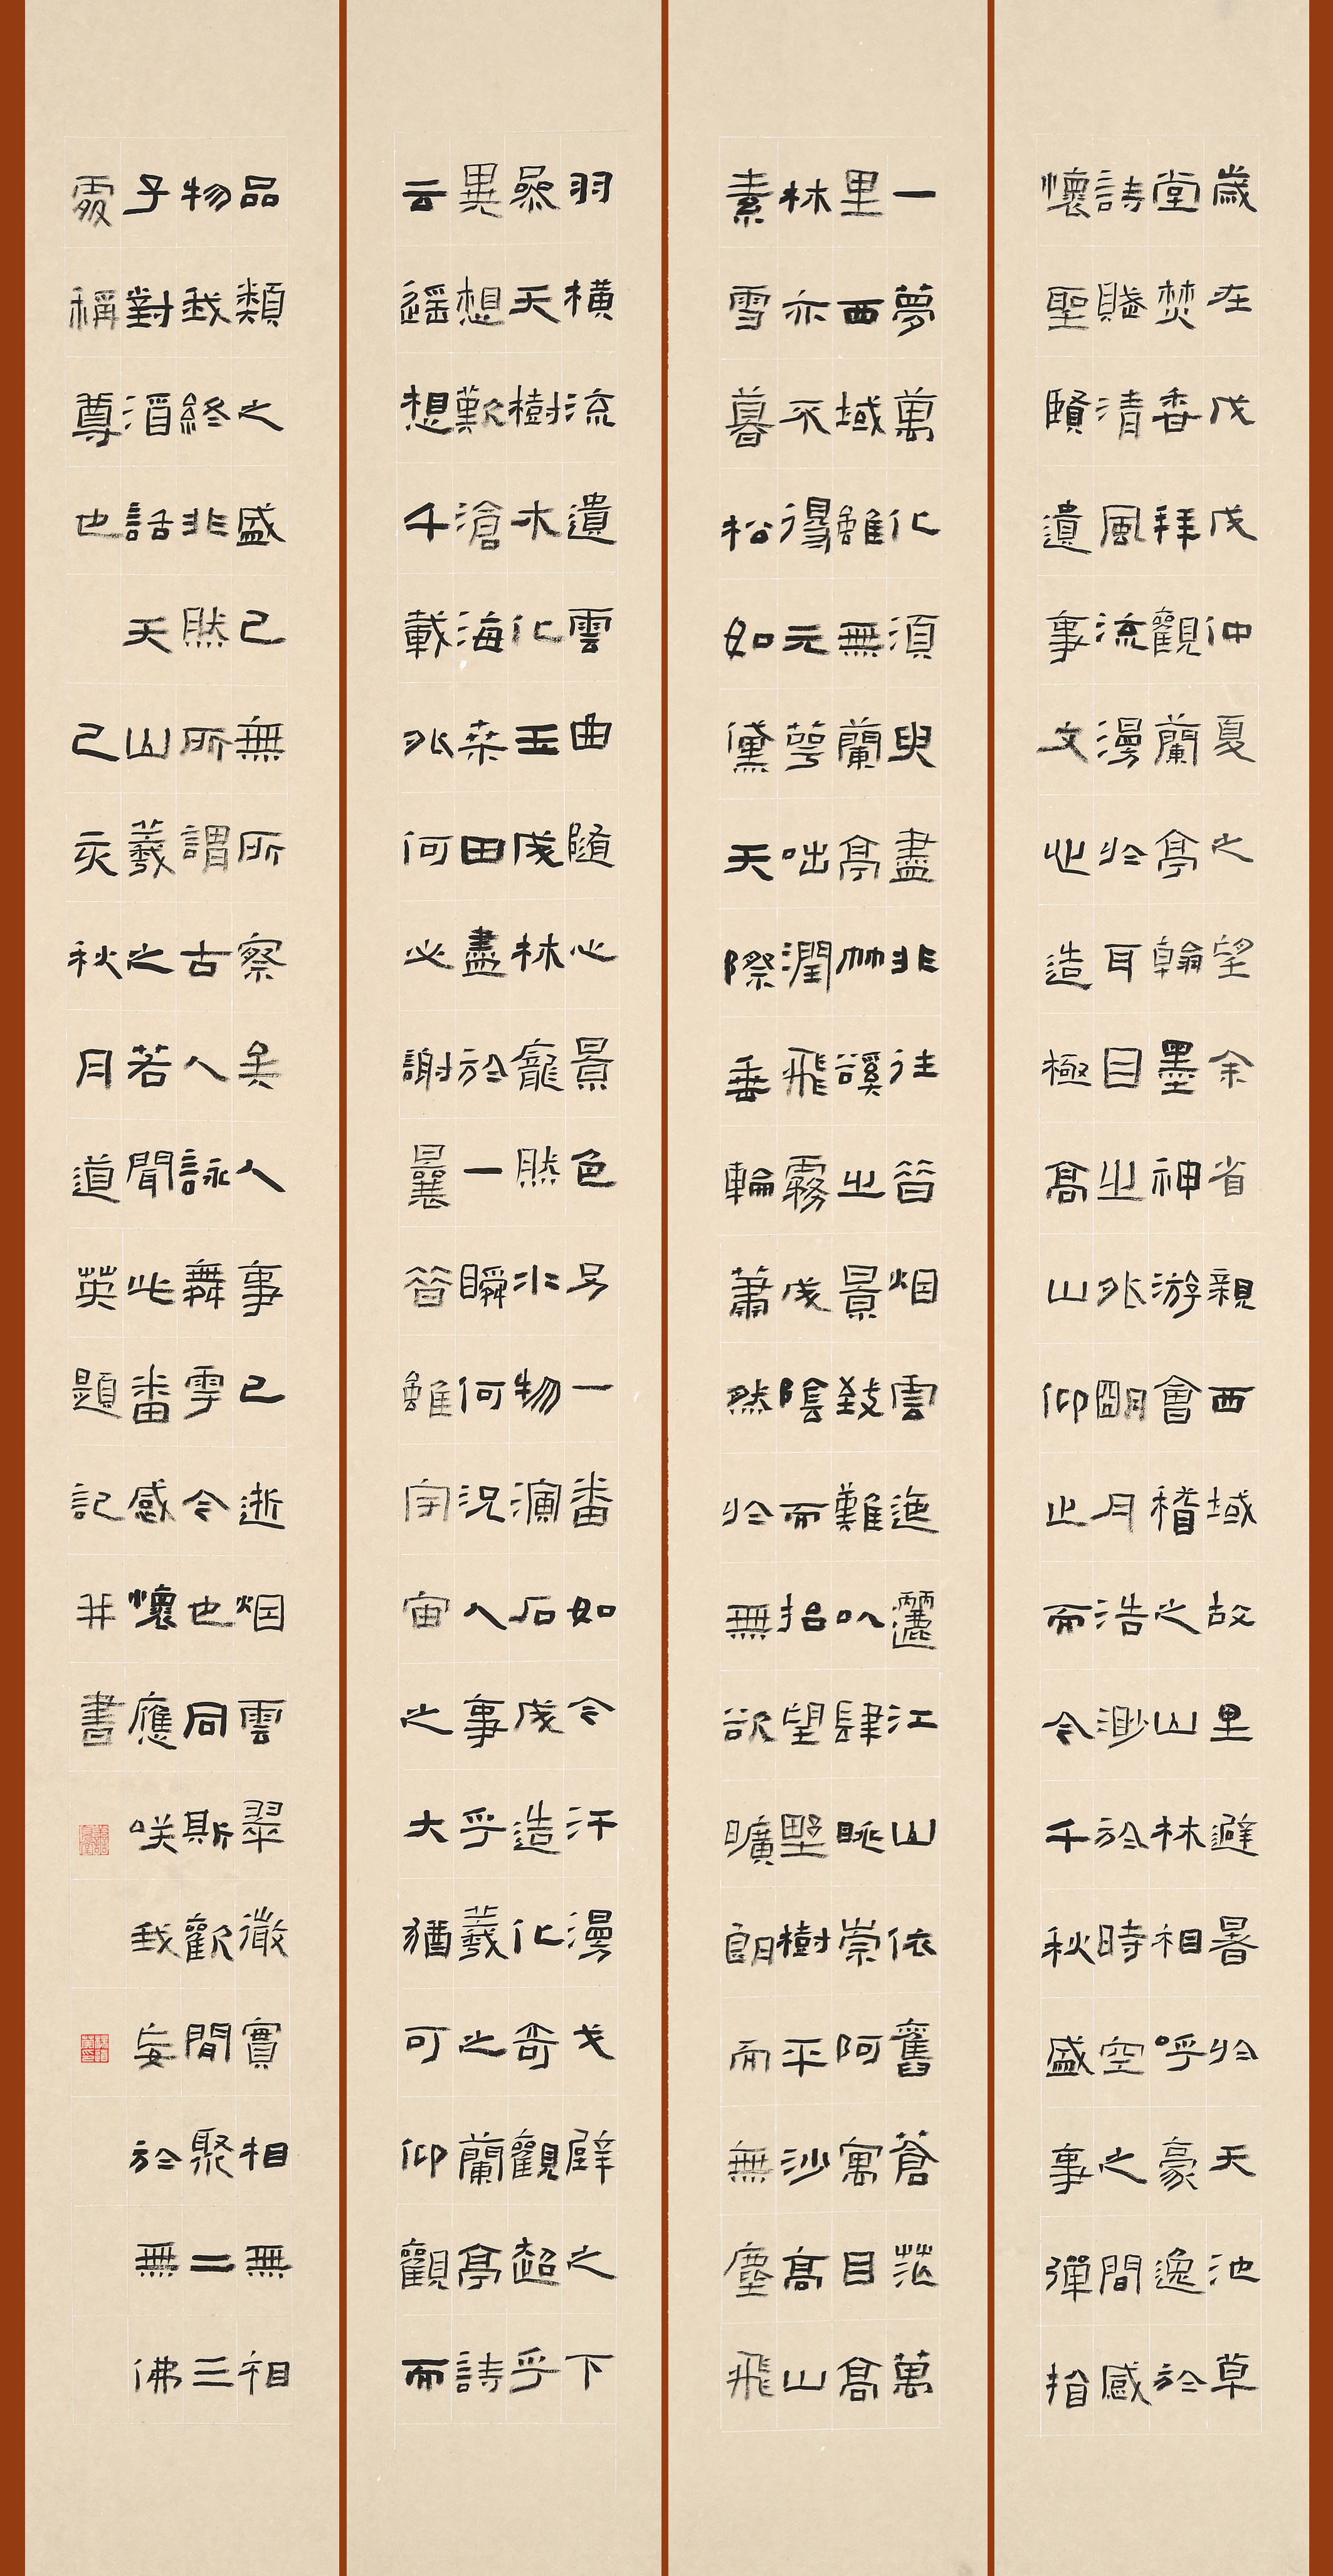 歲在戊戌仲夏之望余省親西域故里避暑於天池草
堂焚香拜觀蘭亭翰墨神游會稽之山林相呼豪逸於
詩賤清風流漫於耳目之外朙月浩渺於時空之間感
懷聖賢遺事文心造極高山仰止而令千秋盛事彈指
一夢萬化須臾盡非往昔烟雲迤邐江山依舊蒼茫萬
里西域雖無蘭亭竹谿之景致難以肆眺崇阿寓目高
林亦不得元萼吐潤飛霧成陰而招望野樹平沙高山
素雪暮松如黛天際垂輪蕭然於無欲曠朗而無塵飛
羽橫流遺雲曲隨心景色另一番如今汗漫戈壁之下
天樹木化玉成林龐然水物演石成造化奇觀超乎
異想歎滄海桑田盡於一瞬何況人事乎羲之蘭亭詩
云遥想千載外何必謝曩昔雖宇宙之大猶可仰觀而
品類之盛已無所察矣人事已逝烟雲翠微實相無相
物我終非然所謂古人詠舞雩今也同斯歡間聚二三
子對酒話天山羲之若聞此番感懷應咲我妄於無佛
處稱尊也 己亥秋月道英題記并書